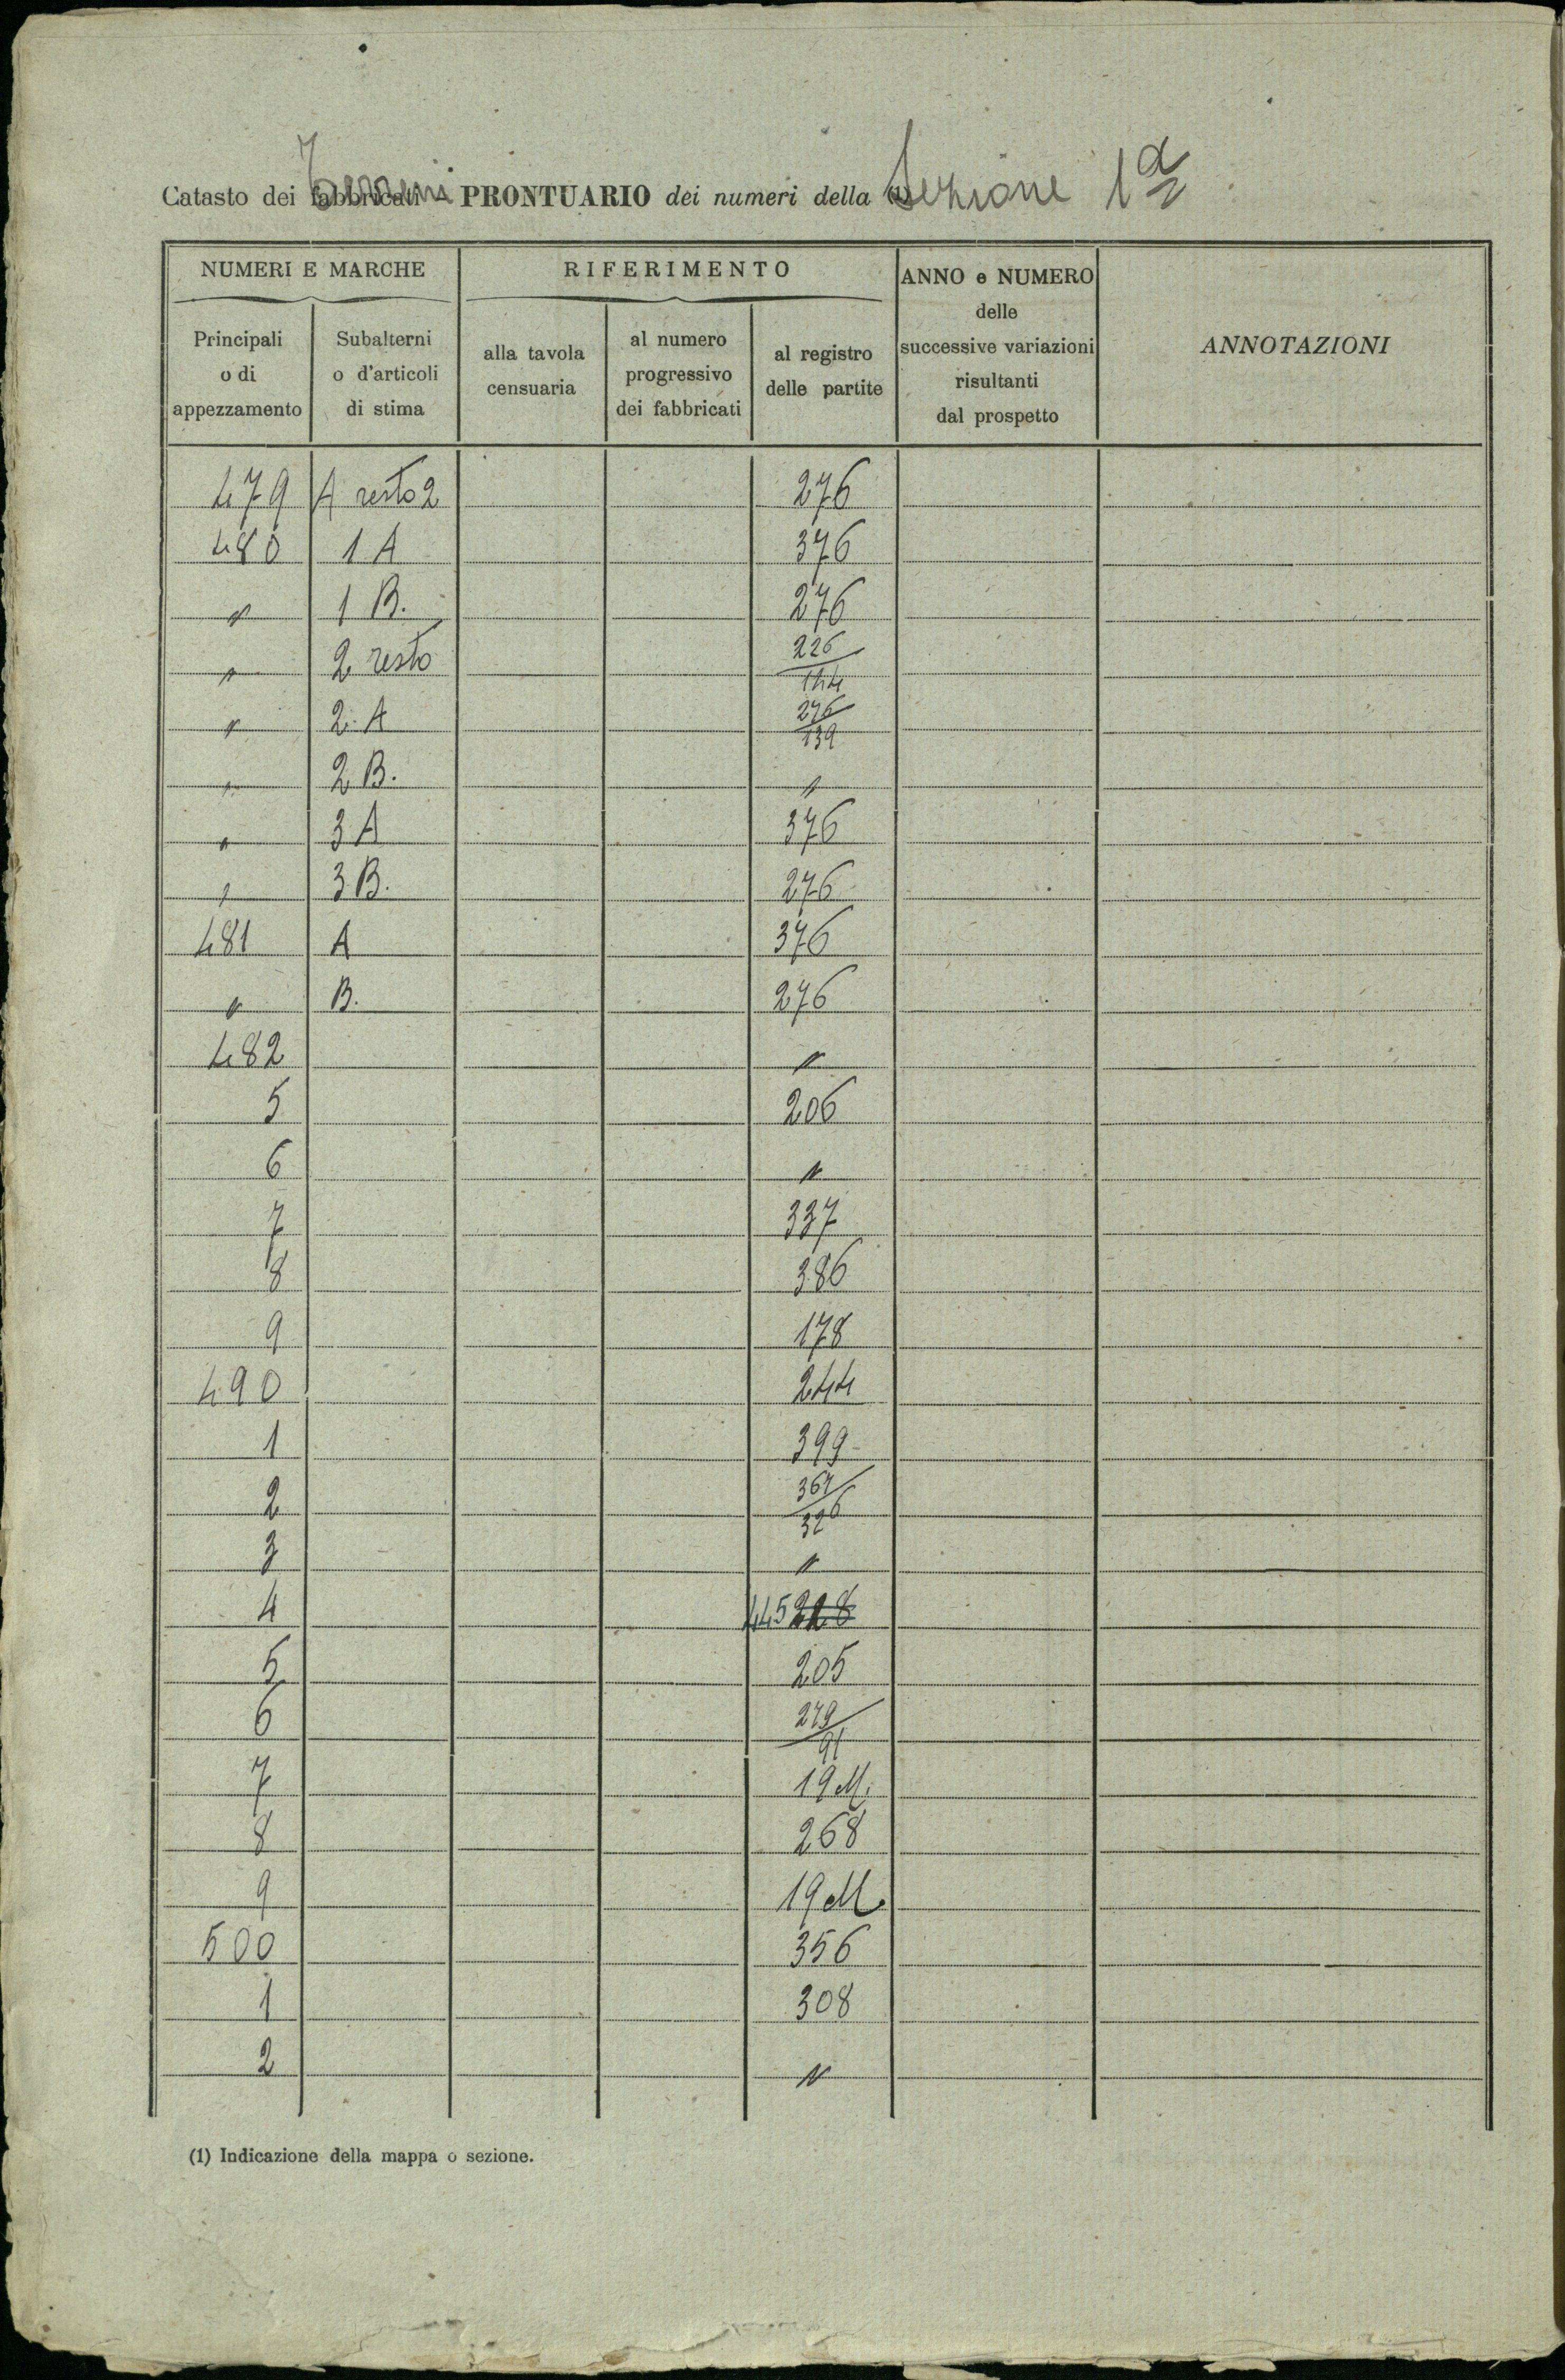 Catasto dei fabbricati Terreni — PRONTUARIO dei numeri della (1) Sezione 1ª
NUMERI E MARCHE
RIFERIMENTO
ANNO e NUMERO
delle
successive variazioni
risultanti
dal prospetto
ANNOTAZIONI
Principali
o di
appezzamento
Subalterni
o d'articoli
di stima
alla tavola
censuaria
al numero
progressivo
dei fabbricati
al registro
delle partite
479 A resto 2 276
480 1 A 376
" 1 B. 276
" 2 resto 226/144
" 2. A 276/139
" 2 B. "
" 3 A 376
" 3 B. 276
481 A 376
" B. 276
482 "
5 206
6 "
7 337
8 386
9 178
490 244
1 399
2 364/326
3 "
4 445 228
5 205
6 279/91
7 19 M.
8 268
9 19 M.
500 356
1 308
2 "
(1) Indicazione della mappa o sezione.